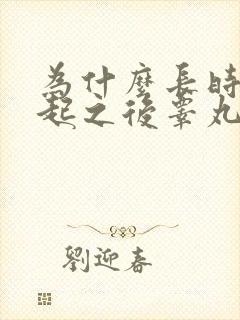 為什麼長時
起之後睪丸
劉迎春